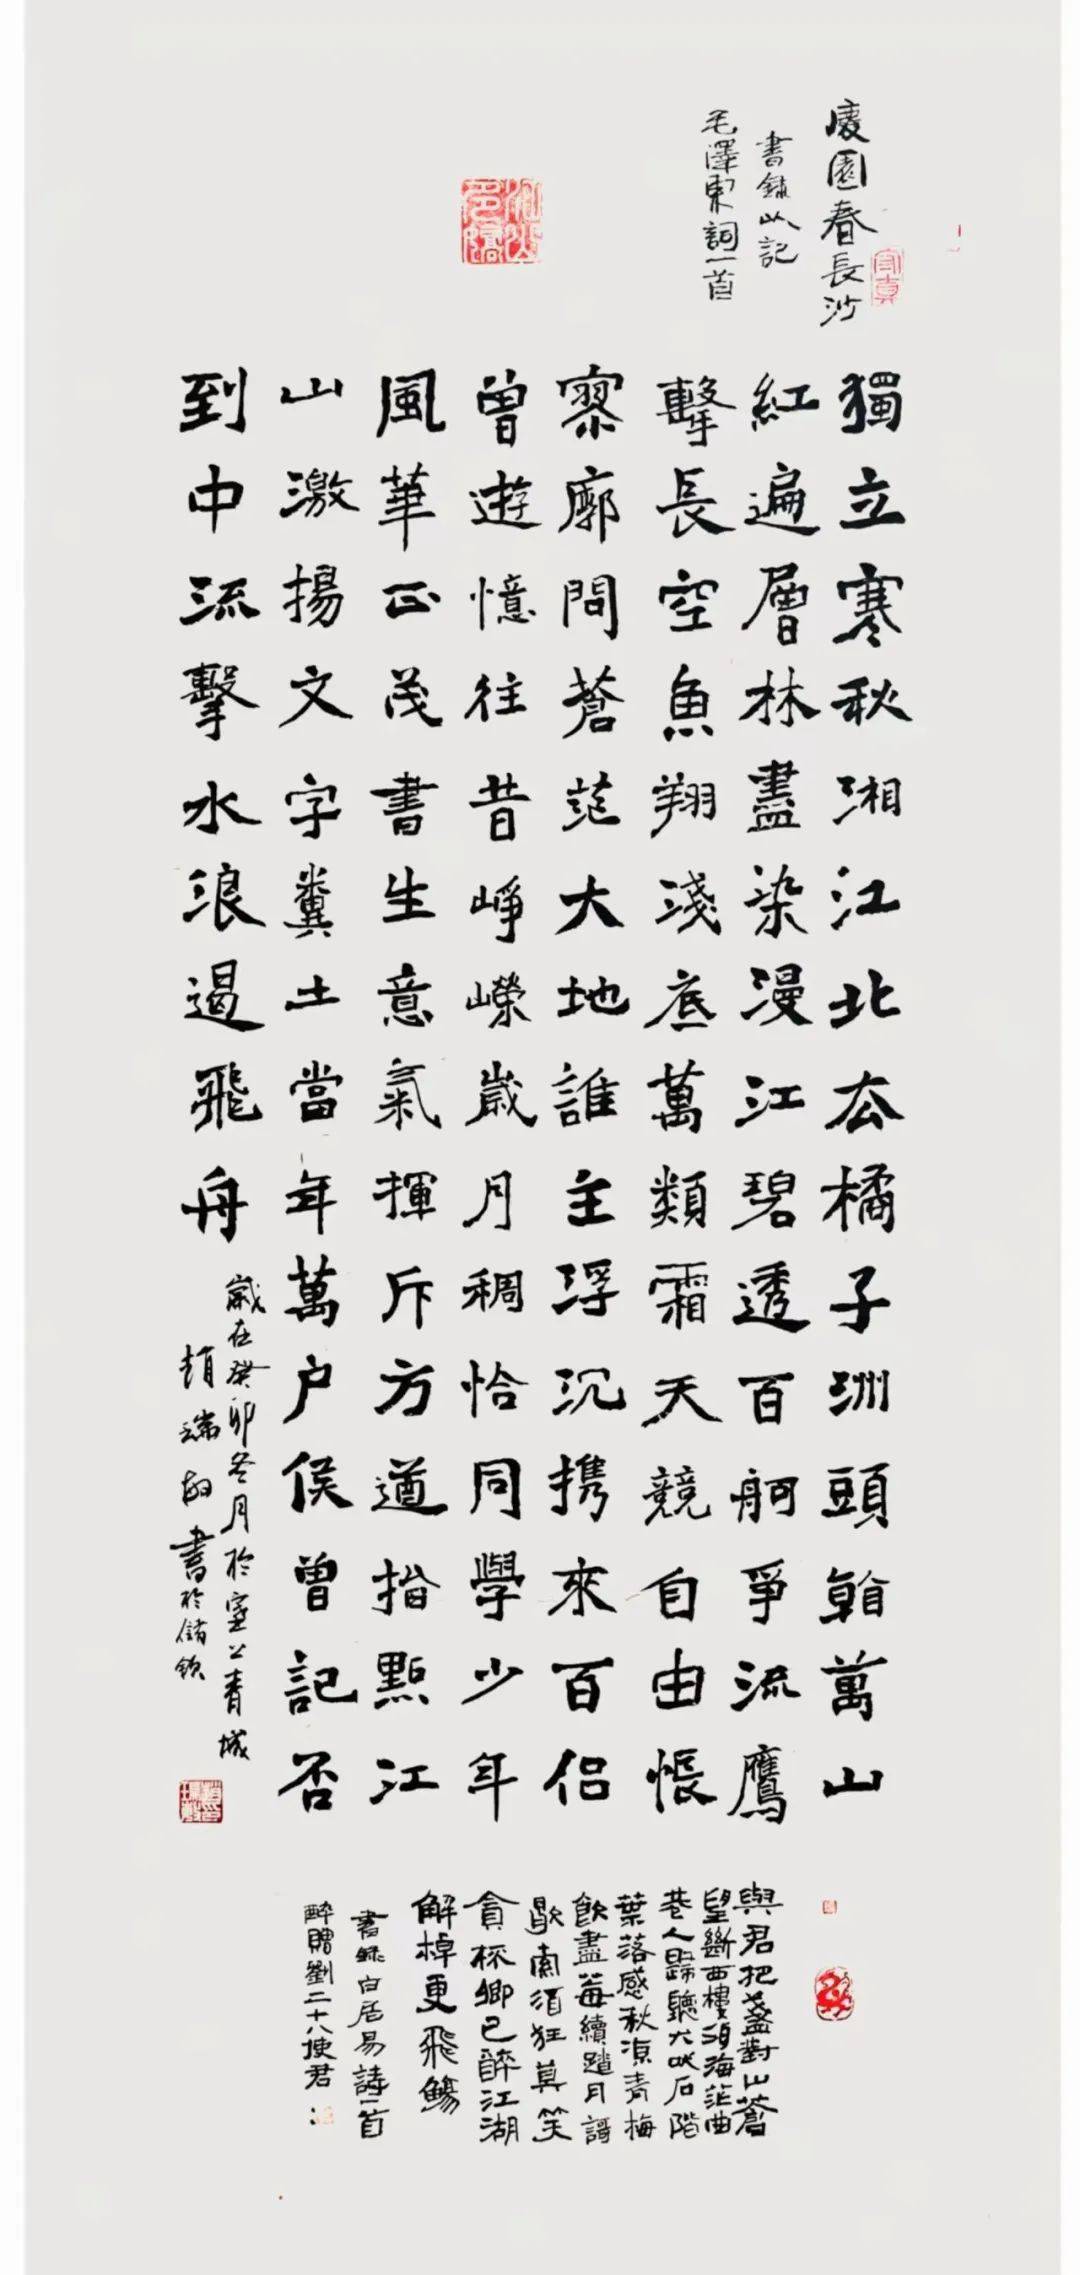 慶園春長沙
書錄以記
毛澤東詞一首
江山多嬌
獨立寒秋湘江北去橘子洲頭看萬山
紅遍層林盡染漫江碧透百舸爭流鷹
擊長空魚翔淺底萬類霜天競自由悵
寥廓問蒼茫大地誰主浮沉携來百侶
曾遊憶往昔崢嶸歲月稠恰同學少年
風華正茂書生意氣揮斥方遒指點江
山激揚文字糞土當年萬户侯曾記否
到中流擊水浪遏飛舟
歲在癸卯冬月於塞上青城
趙瑞書於
與君把盞對山蒼
望斷西樓海茫曲
巷人歸聽犬吠石階
葉落感秋涼青梅
飲盡每續月謌
歇須狂莫笑
貪杯卿已醉江湖
解棹更飛觴
書錄白居易詩一首
醉贈劉二十八使君